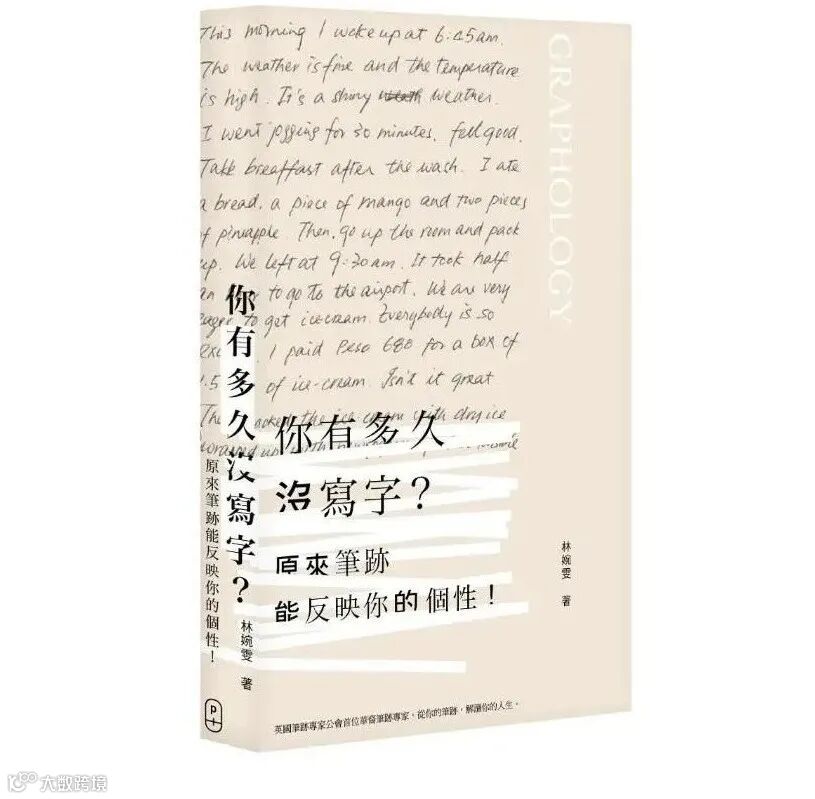 This morning I woke up at 6:45am.
The weather is fine and the temperature
is high. It's a shiny weather.
I went jogging for 30 minutes. fell good.
Take breakfast after the wash. I ate
a bread, a piece of mango and two pieces
of pineapple. Then, go up the room and pack
up. We left at 9:30am. It took half
an to go to the airport. We are very
eager to get icecream. Everybody is so
I paid Peso 680 for a box of
1.5 of ice-cream. Isn't it great
the ice cream with dry ice
GRAPHOLOGY
你有多久
沒寫字？
原來筆跡
能反映你的個性！
林婉雯 著
英國筆跡專家公會首位華裔筆跡專家，從你的筆跡，解讀你的人生。
你有多久沒寫字？
原來筆跡能反映你的個性！
林婉雯 著
P+
大数跨境